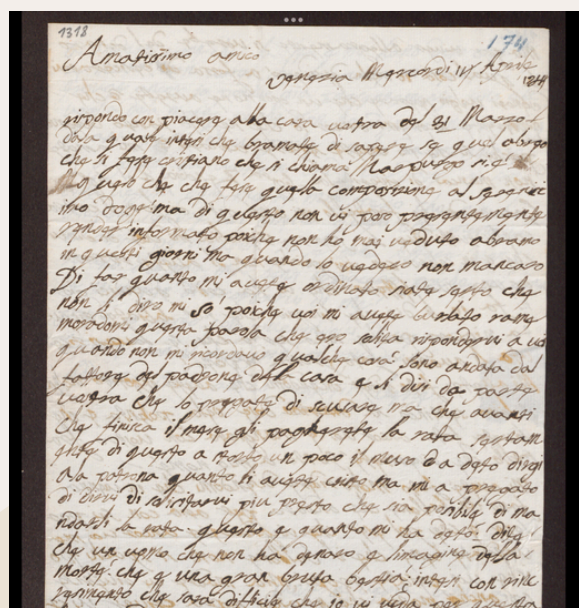 1318
174
Amatissimo amico
Venezia Mercordi 14 Aprile
rispondo con piacere alla cara vostra del 21 Marzo
dala quale intesi che bramate di sapere se quel abreo
che si fece cristiano che si chiama
che fece quela composizione al sereniss
imo doge ma di questo non vi poso presentemente
render informato poiche non ho mai veduto abramo
in questi giorni ma quando lo vedero non mancaro
Di far quanto mi avete ordinato siate certo che
non li diro mi so poiche voi mi avete burlato rame
morandomi questa parola che ero solita rispondervi a voi
quando non mi ricordavo qualche cosa sono andata dal
fattore del padrone dela casa e li disi da parte
vostra che lo pregate di scusare ma che avanti
che finisca il mese gli pagherete la rata
di questo a storto un poco il muso e a deto
a a patrona quanto li avete scrito ma mi a pregato
di dirvi di solicitarvi piu presto che sia posibile di ma
ndarli la rata. questo e quanto mi ha detto
che un uomo che non ha denaro e l'imagine dela
morte che e una gran bruta bestia intesi con rinc
rescimento che sara dificile che io vi veda per